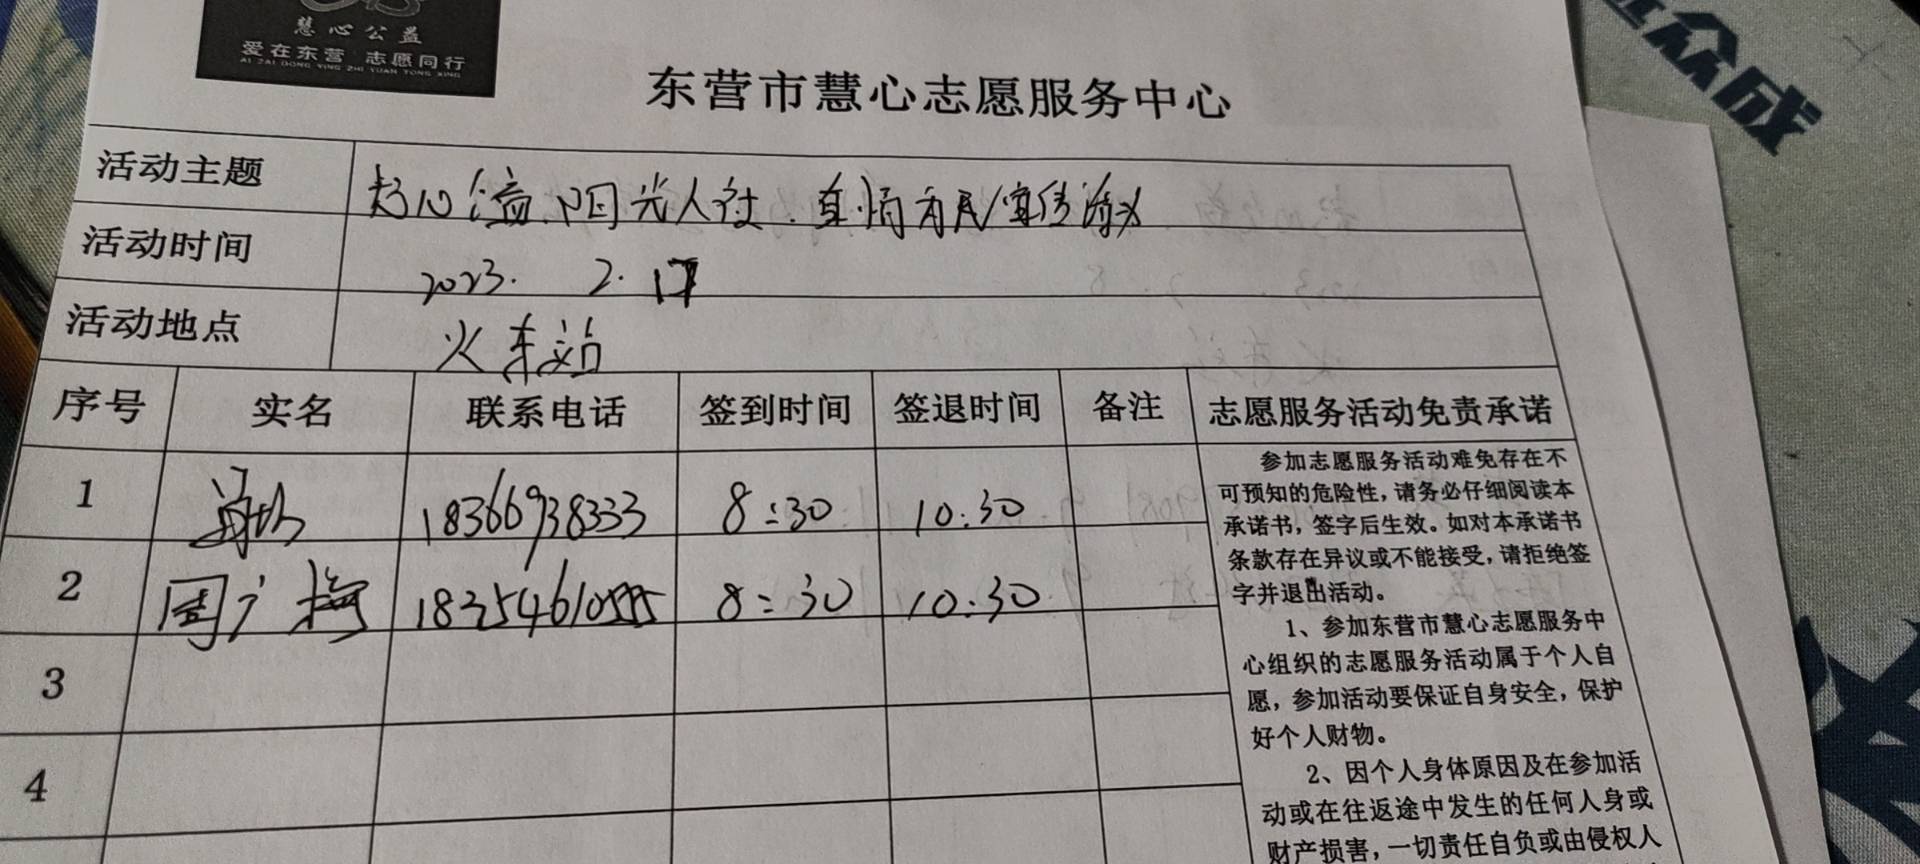 慧心公益
爱在东营 志愿同行
AI ZAI DONG YING ZHI YUAN TONG XING
众成
东营市慧心志愿服务中心
活动主题 阳光人社.真情为民/宣传
活动时间 2023. 2. 17
活动地点 火车站
序号 实名 联系电话 签到时间 签退时间 备注 志愿服务活动免责承诺
1 18366938333 8:30 10:30
2 周广梅 18354610555 8:30 10:30
3
4
参加志愿服务活动难免存在不
可预知的危险性，请务必仔细阅读本
承诺书，签字后生效。如对本承诺书
条款存在异议或不能接受，请拒绝签
字并退出活动。
1、参加东营市慧心志愿服务中
心组织的志愿服务活动属于个人自
愿，参加活动要保证自身安全，保护
好个人财物。
2、因个人身体原因及在参加活
动或在往返途中发生的任何人身或
财产损害，一切责任自负或由侵权人